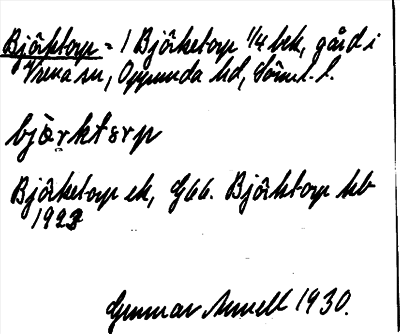 Björktorp = 1 Björketorp 1/4 bek, gård i
Vrena sn, Oppunda hd, Söml. l.
bjö̀rktɷrp
Björketorp ek, G66. Björktorp kb
1923
Gunnar Annell 1930.